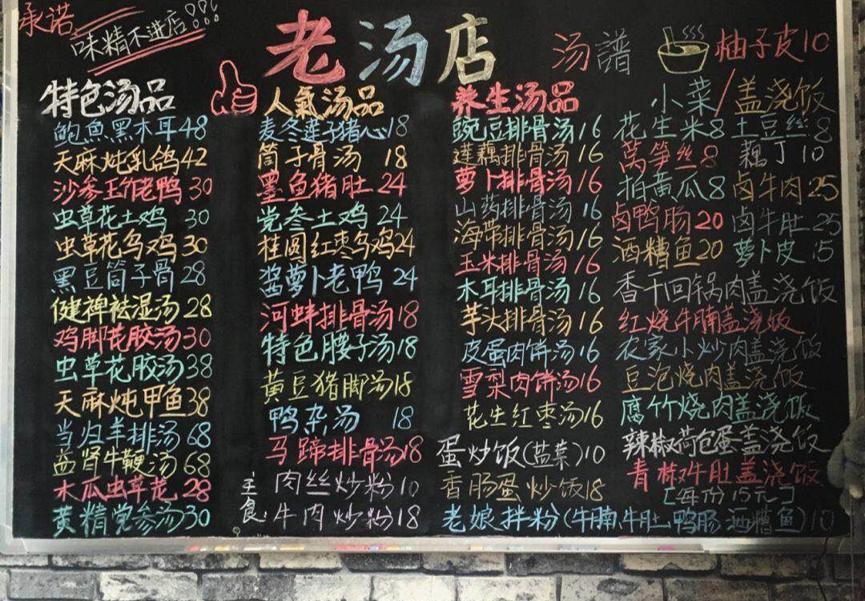 承诺
味精不进店!!!
老汤店
汤譜
柚子皮10
特色汤品
鲍魚黑木耳48
天麻炖乳鸽42
沙参玉竹老鸭30
虫草花土鸡 30
虫草花乌鸡30
黑豆筒子骨28
健裨袪湿汤28
鸡脚花胶汤30
虫草花胶汤38
天麻炖甲鱼38
当归羊排汤68
益肾牛鞭汤68
木瓜虫草花 28
黄精党参汤30
人氣汤品
麦冬莲子猪心18
筒子骨汤 18
墨鱼猪肚 24
党参土鸡 24
桂圆红枣乌鸡24
酱萝卜老鸭 24
河蚌排骨汤18
特色腰子汤18
黄豆猪脚汤18
鸭杂汤 18
马蹄排骨汤18
主食
肉丝炒粉10
牛肉炒粉18
养生汤品
豌豆排骨汤16
莲藕排骨汤16
萝卜排骨汤16
山药排骨汤16
海带排骨汤16
玉米排骨汤16
木耳排骨汤16
芋头排骨汤16
皮蛋肉饼汤16
雪梨肉饼汤16
花生红枣汤16
蛋炒饭(蓝菜)10
香肠蛋炒饭18
老娘拌粉(牛腩牛肚鸭肠酒糟鱼)10
小菜/盖浇饭
花生米8 土豆丝8
莴笋丝8 藕丁10
拍黄瓜8 卤牛肉25
卤鸭肠20 卤牛肚25
酒精鱼20 萝卜皮15
香干回锅肉盖浇饭
红烧牛腩盖浇饭
农家小炒肉盖浇饭
豆泡烧肉盖浇饭
腐竹烧肉盖浇饭
辣椒荷包蛋盖浇饭
青椒牛肚盖浇饭
[每份15元]